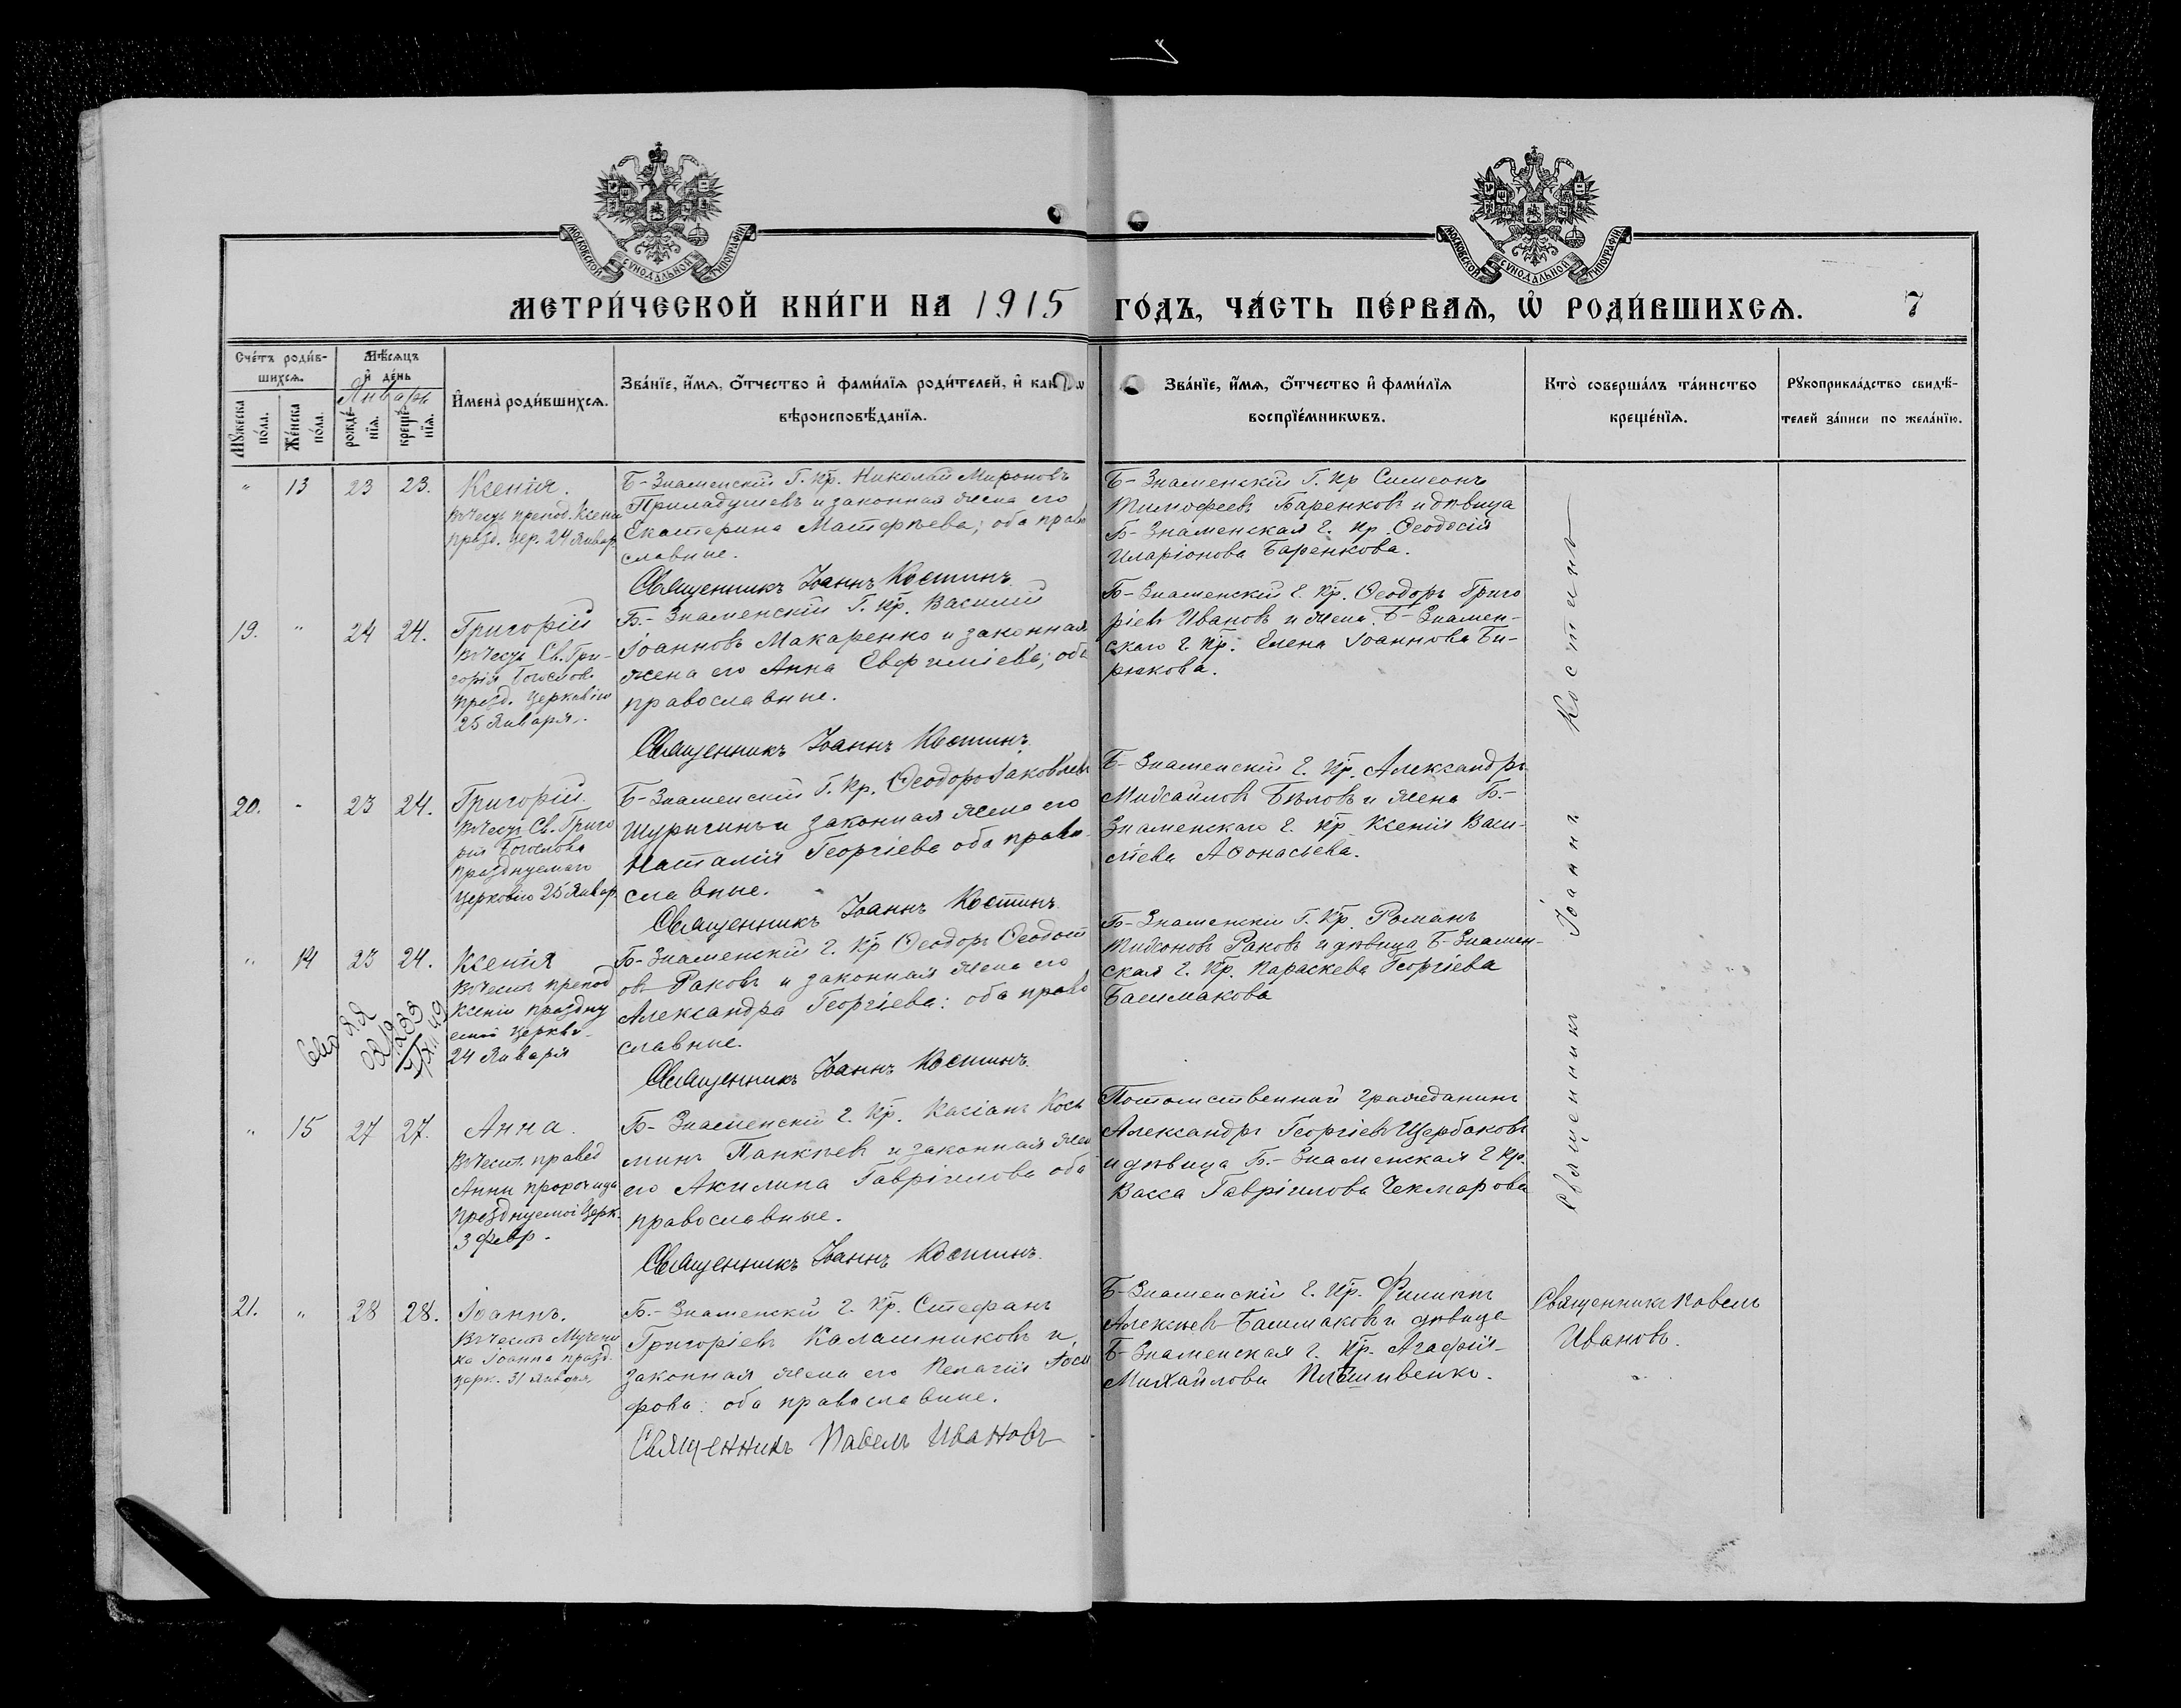 МОСКОВСКОЙ СУНОДАЛЬНОЙ ТИПОГРАФІИ
МОСКОВСКОЙ СУНОДАЛЬНОЙ ТИПОГРАФІИ
МЕТРИ́ЧЕСКОЙ КНИ́ГИ НА 1915 ГО́ДЪ, ЧА́СТЬ ПЕ́РВАѦ, Ѡ РОДИ́ВШИХСѦ.
7
Сче́тъ роди́в-
шихсѧ.
Мꙋжеска по́ла.
Же́нска по́ла.
Мѣ́сѧцъ
и҆ де́нь
Январь
рожде́-
нїѧ.
креще́-
нїѧ.
И҆мена̀ роди́вшихсѧ.
Зва́нїе, и҆́мѧ, ѻ҆́тчество и҆ фами́лїѧ роди́телей, и҆
вѣроисповѣ́данїѧ.
Зва́нїе, и҆́мѧ, ѻ҆́тчество и҆ фами́лїѧ
воспрїе́мникѡвъ.
Кто̀ соверша́лъ та́инство
креще́нїѧ.
Рꙋкоприкла́дство свидѣ́-
телей за́писи по жела́нїю.
" 13 23 23. Ксенія.
Въ честь препод. Ксеніи
празд. цер. 24 Январ.
Б-Знаменскій Г. Кр. Николай Мироновъ
Приладушевъ и законная жена его
Екатерина Матѳѣева; оба право
славные.
Священникъ Іоаннъ Костинъ
Б-Знаменскій Г. Кр Симеонъ
Тимофеевъ Баренковъ и дѣвица
Б-Знаменская г. кр. Ѳеодосія
Иларіонова Баренкова.
19. " 24 24. Григорій
Въ честь Св. Гри-
горія Богослова
празд. Церковію
25 Января.
Б.-Знаменскій Г. Кр. Василій
Іоанновъ Макаренко и законная
жена его Анна Евфиміева; оба
православные.
Священникъ Іоаннъ Костинъ
Б-Знаменскій г. Кр. Ѳеодоръ Григо
ріевъ Ивановъ и жена Б-Знамен-
скаго г. Кр. Елена Іоаннова Би-
рюкова.
20. " 23 24. Григорій
Въ честь Св. Григо
рія Богослова
празднуемаго
Церковію 25 Январ.
Б-Знаменскій Г. Кр. Ѳеодоръ Іаковлевъ
Шурыгинъ и законная жена его
Наталія Георгіева оба право-
славные.
Священникъ Іоаннъ Костинъ
Б-Знаменскій г. Кр. Александръ
Михайловъ Бѣловъ и жена Б.-
Знаменскаго г. кр. Ксенія Васи-
ліева Аѳонасьева.
" 14 23 24. Ксенія
Въ честь препод
Ксеніи праздну
емой Церквію
24 Января
Б-Знаменскій г. Кр Ѳеодоръ Ѳеодот
овъ Раковъ и законная жена его
Александра Георгіева: оба право
славные.
Священникъ Іоаннъ Костинъ
Б-Знаменскій Г. Кр. Романъ
Тихоновъ Раковъ и дѣвица Б-Знамен-
ская г. Кр. Параскева Георгіева
Башмакова
" 15 27 27. Анна.
Въ честь правед
Анны пророчицы
празднуемой Церк.
3 Февр.
Б-Знаменскій г. Кр. Касіанъ Кось
минъ Панкѣевъ и законная жена
его Акилина Гавріилова оба
православные.
Священникъ Іоаннъ Костинъ
Потомственный гражданинъ
Александръ Георгіевъ Щербаковъ
и дѣвица Б.-Знаменская г Кр.
Васса Гавріилова Чекмарова
Священникъ Іоаннъ Костинъ
21. " 28 28. Іоаннъ.
Въ честь Мучени
ка Іоанна празд.
церк. 31 Января
Б.-Знаменскій г. Кр. Стефанъ
Григоріевъ Калашниковъ и
законная жена его Пелагія Іоси
фова: оба православные.
Священникъ Павелъ Ивановъ
Б-Знаменскій г. Кр. Филиппъ
Алексѣевъ Башмаковъ и дѣвица
Б-Знаменская г. Кр. Агафія
Михайлова Плѣшивенко.
Священникъ Павелъ
Ивановъ.